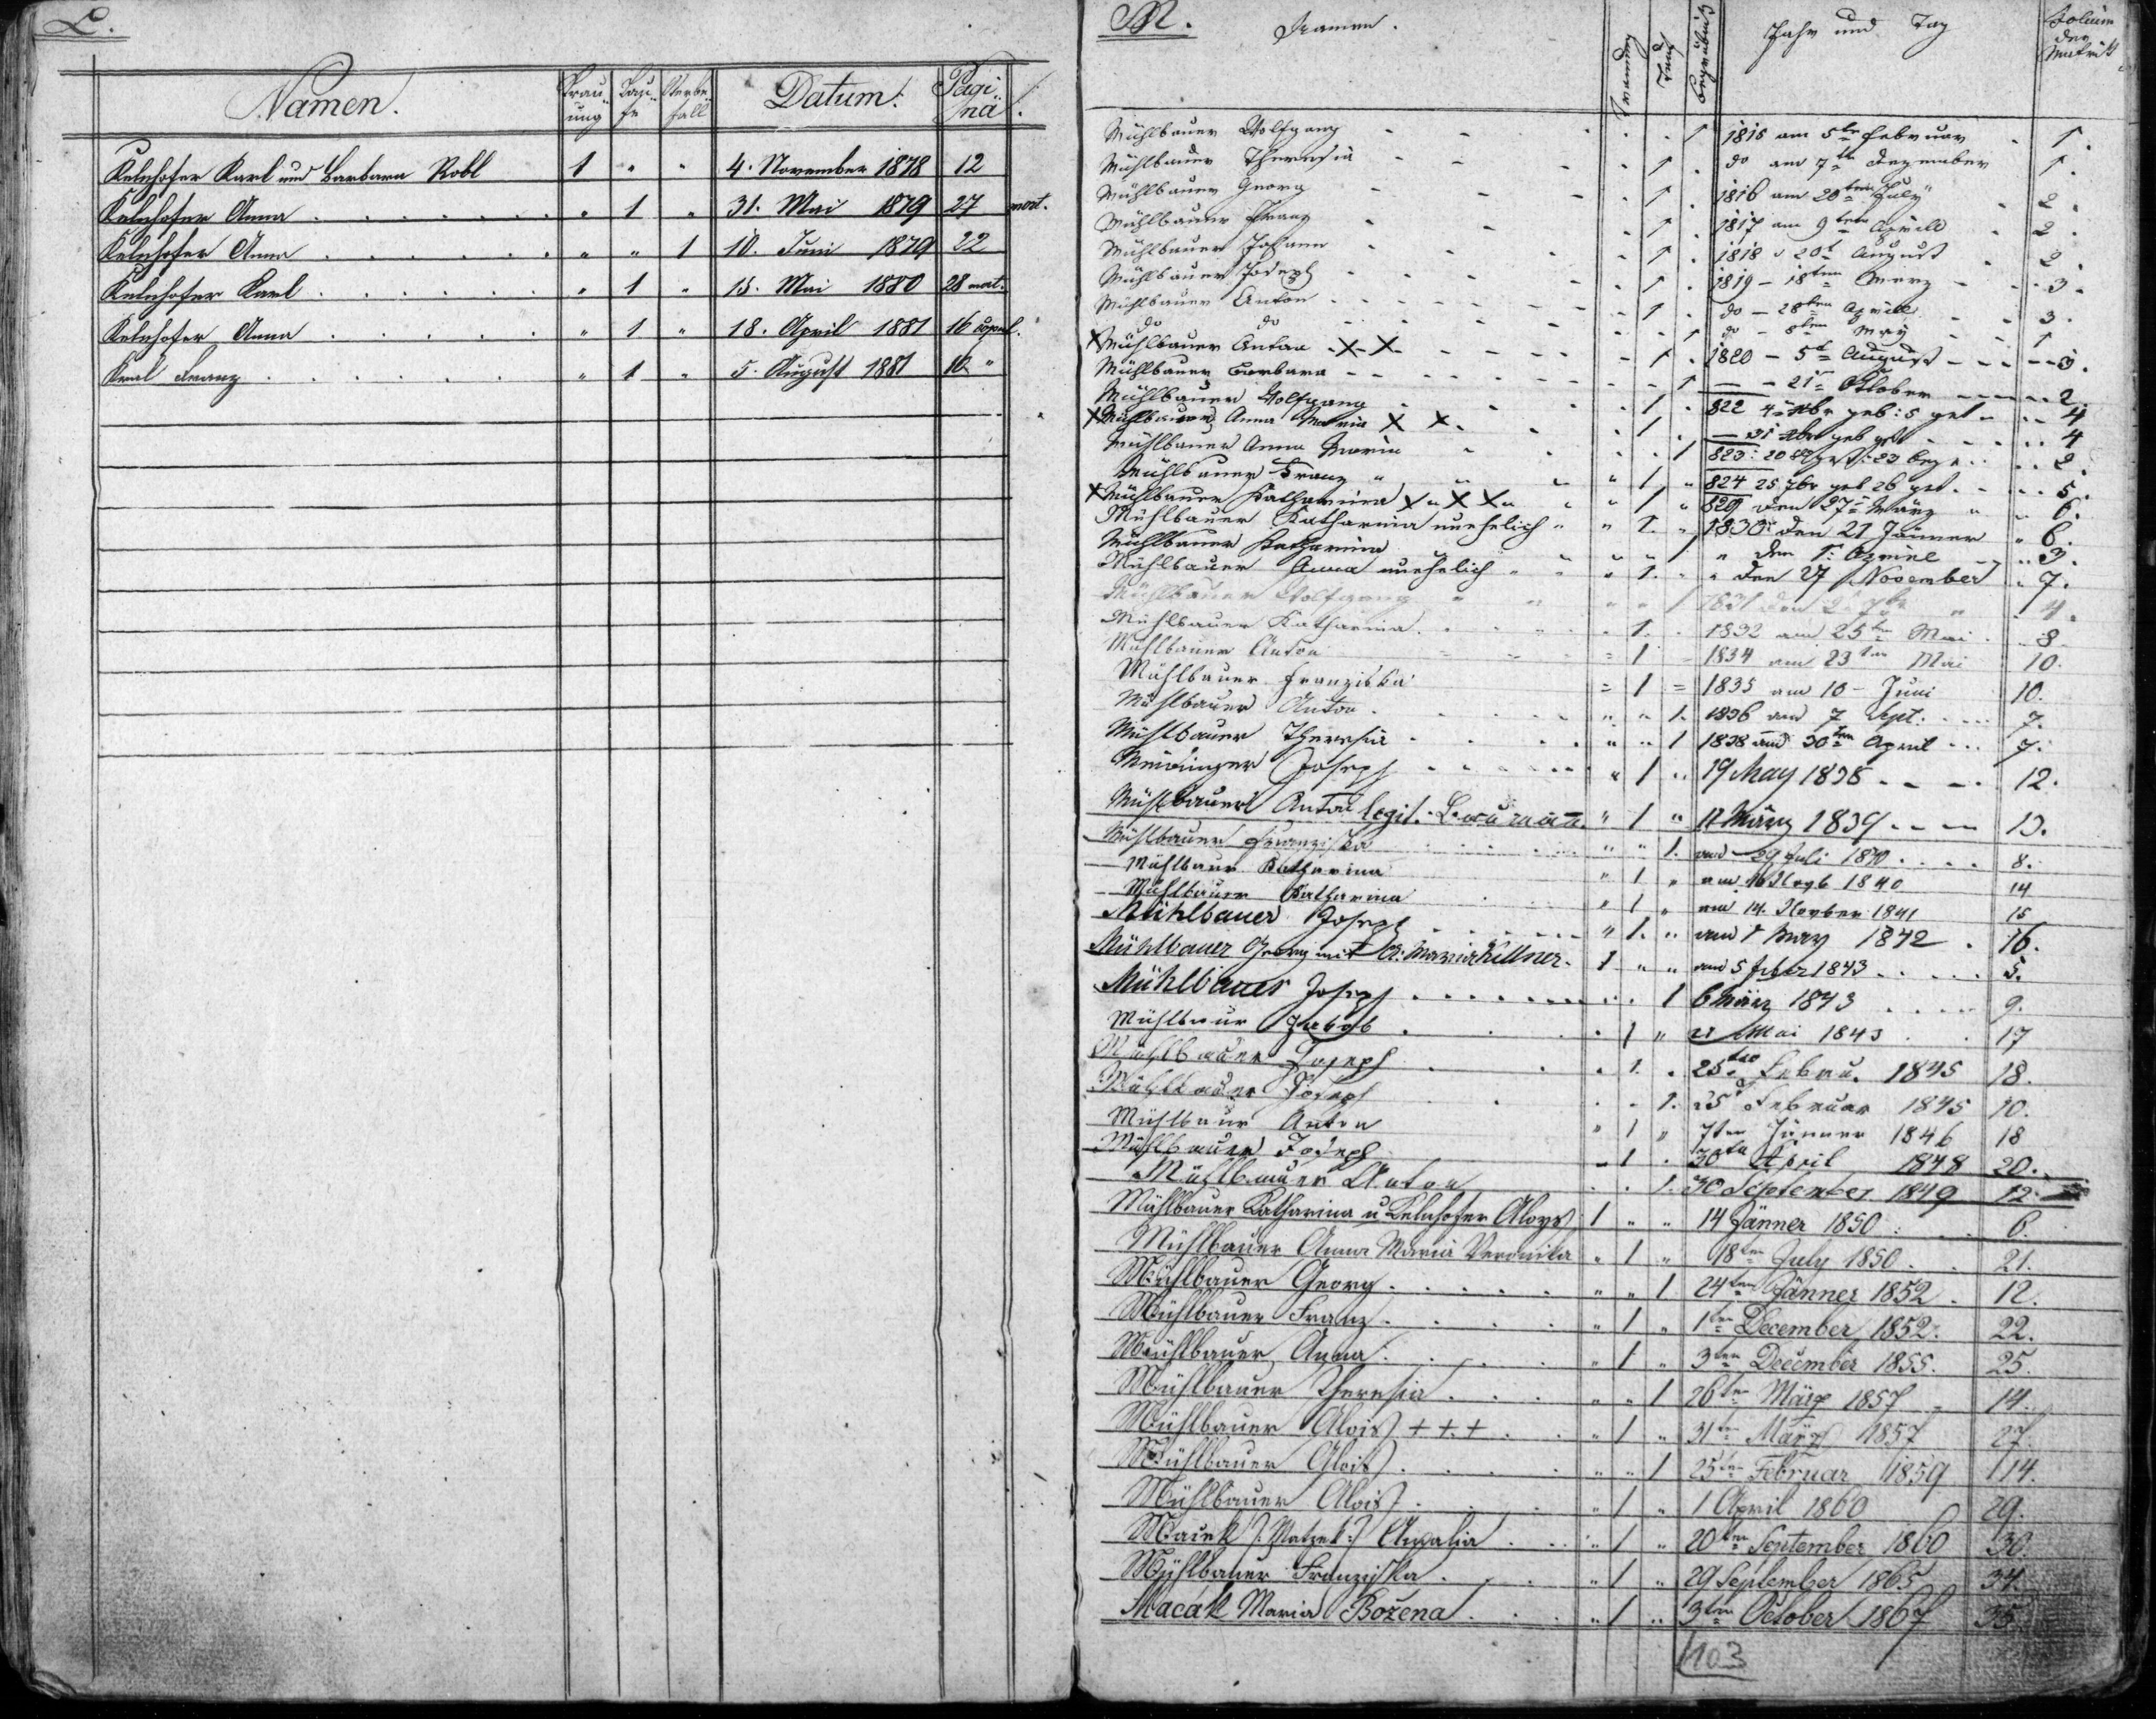 L.
Namen. Trau„ung Tau„fe Sterbe„fall Datum. Pagi„nä.
Kelnhofer Karl und Barbara Robl 1 „ „ 4. November 1878 12
Kelnhofer Anna . . . . . . . „ 1 „ 31. Mai 1879 27 mort.
Kelnhofer Anna . . . . . . . „ „ 1 10. Juni 1879 22
Kelnhofer Karl . . . . . . „ 1 „ 15. Mai 1880 28 mort.
Kelnhofer Anna . . . . . „ 1 „ 18. April 1881 16 copul.
Kral Franz . . . . . . „ 1 „ 5. August 1881 16 „
M. Namen. Trauung Tauf Begräbniß Jahr und Tag Folium der Matrik
Mühlbauer Wolfgang 1 1815 am 5te Februar 1.
Mühlbauer Theresia 1 do am 7te Dezember 1.
Mühlbauer Georg 1 1816 am 20ten July 2.
Mühlbauer Franz 1 1817 am 9ten Aprill 2.
Mühlbauer Johann 1 1818 20t August 2
Mühlbauer Joseph 1 1819 – 18ten Merz 3.
Mühlbauer Anton 1 do – 28ten Aprill 3.
do do 1 do – 8ten May 1
X Mühlbauer Anton X X 1 1820 – 5t August 3.
Mühlbauer Barbara 1 – 21t Oktober 2.
Mühlbauer Wolfgang 1 822 4
X Mühlbauer Anna Maria X X 1 4
Mühlbauer Anna Maria 1 823 2.
Mühlbauer Franz „ „ 1 „ 824 25 7br geb 26 get. 5.
X Mühlbauer Katharina X „ X X „ 1 „ 829 den 27t März „ 6.
Mühlbauer Katharina unehelich „ „ 1. „ 1830 den 21 Jänner „ 6.
Mühlbauer Katharina „ „ 1 „ den 1. Aprile 3.
Mühlbauer Anna unehelich „ „ 1. „ den 27 November 7.
Mühlbauer Wolfgang „ „ 1 1831 4.
Mühlbauer Katharina . 1. 1832 am 25ten Mai 8
Mühlbauer Anton = 1 1834 am 23ten Mai 10.
Mühlbauer Franziska = 1 = 1835 am 10 – Juni 10.
Mühlbauer Anton . „ „ 1. 1836 am 7 Sept. 7.
Mühlbauer Theresia . „ „ 1 1838 am 30ten April 7.
Joseph „ 1 „ 19 May 1838 12.
Mühlbauer Anton legit. „ 1 „ März 1839 13.
Mühlbauer Franziska „ „ 1. am 29 Juli 1840 8.
Mühlbaur Katharina „ 1 „ am 16 1840 14
Mühlbauer Katharina „ 1 „ am 14. 1841 15
Mühlbauer Joseph „ 1. „ am 1 May 1842 16.
Mühlbauer Georg mit A: Maria Killner. 1 „ „ am 5 1843 5.
Mühlbauer Joseph 1 6 März 1843 9.
Mühlbaur Jakob . 1 „ 22 Mai 1843 17
Mühlbauer Joseph . 1. 25ten Febru. 1845 18.
Mühlbauer Joseph . 1. 25t Februar 1845 10.
Mühlbaur Anton „ 1 „ 7ten Jänner 1846 18
Mühlbauer Joseph „ 1 . 30ten April 1848 20.
Mühlbauer Anton . . 1. 30 September 1849 12.
Mühlbauer Katharina u Kelnhofer Aloys 1 „ „ 14 Jänner 1850 6.
Mühlbauer Anna Maria Veronika „ 1 „ 18ten July 1850 21.
Mühlbauer Georg . „ „ 1 24ten Jänner 1852 . 12.
Mühlbauer Franz . „ 1 „ 1ten December 1852. 22.
Mühlbauer Anna . „ 1 „ 3ten December 1855. 25.
Mühlbauer Theresia . „ „ 1 26ten März 1857 14.
Mühlbauer Alois + + + . „ 1 „ 31ten März 1857 27.
Mühlbauer Alois . „ „ 1 25ten Februar 1859 14.
Mühlbauer Alois . „ 1 „ 1 April 1860 29.
Macek /: Matzek :/ Amalia . „ 1 „ 20ten September 1860 30.
Mühlbauer Franziska . „ 1 „ 29 September 1865 34.
Macák Maria Božena . „ 1 „ 3ten October 1867 35.
103